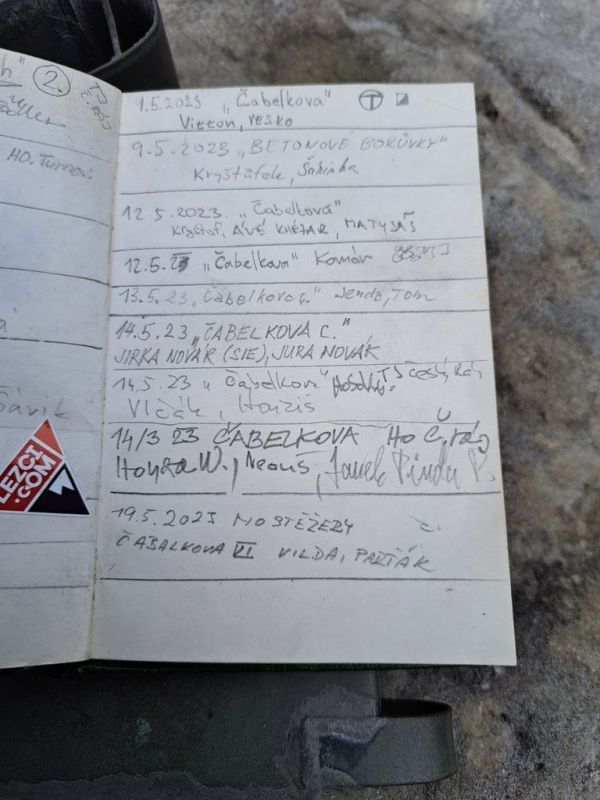 2.
TJ
Č. RÁJ
HO. TURNOV.
LEZCI
.COM
9.5.2023 „Čabelkova" T
VITTON, PESKO
9.5.2023 „BETONOVÉ BORŮVKY"
Kryštůfek, Šárinka
12 5. 2023. „Čabelková"
Kryštof, MATYJÁŠ
12.5. 23 „Čabelková" Komár
13.5. 23 „Čabelkova c." Jenda, Tom
14.5. 23 „ČABELKOVA C."
JIRKA NOVÁK (SIE), JURA NOVÁK
14.5. 23 „Čabelková" TJ Český Ráj
Vlčák,
14/3 23 ČABELKOVA HO Č. ráj
Honza W., Janek Pinda P.
19.5. 2023 HO STĚŽERY
ČABALKOVA VI VILDA, PARŤÁK